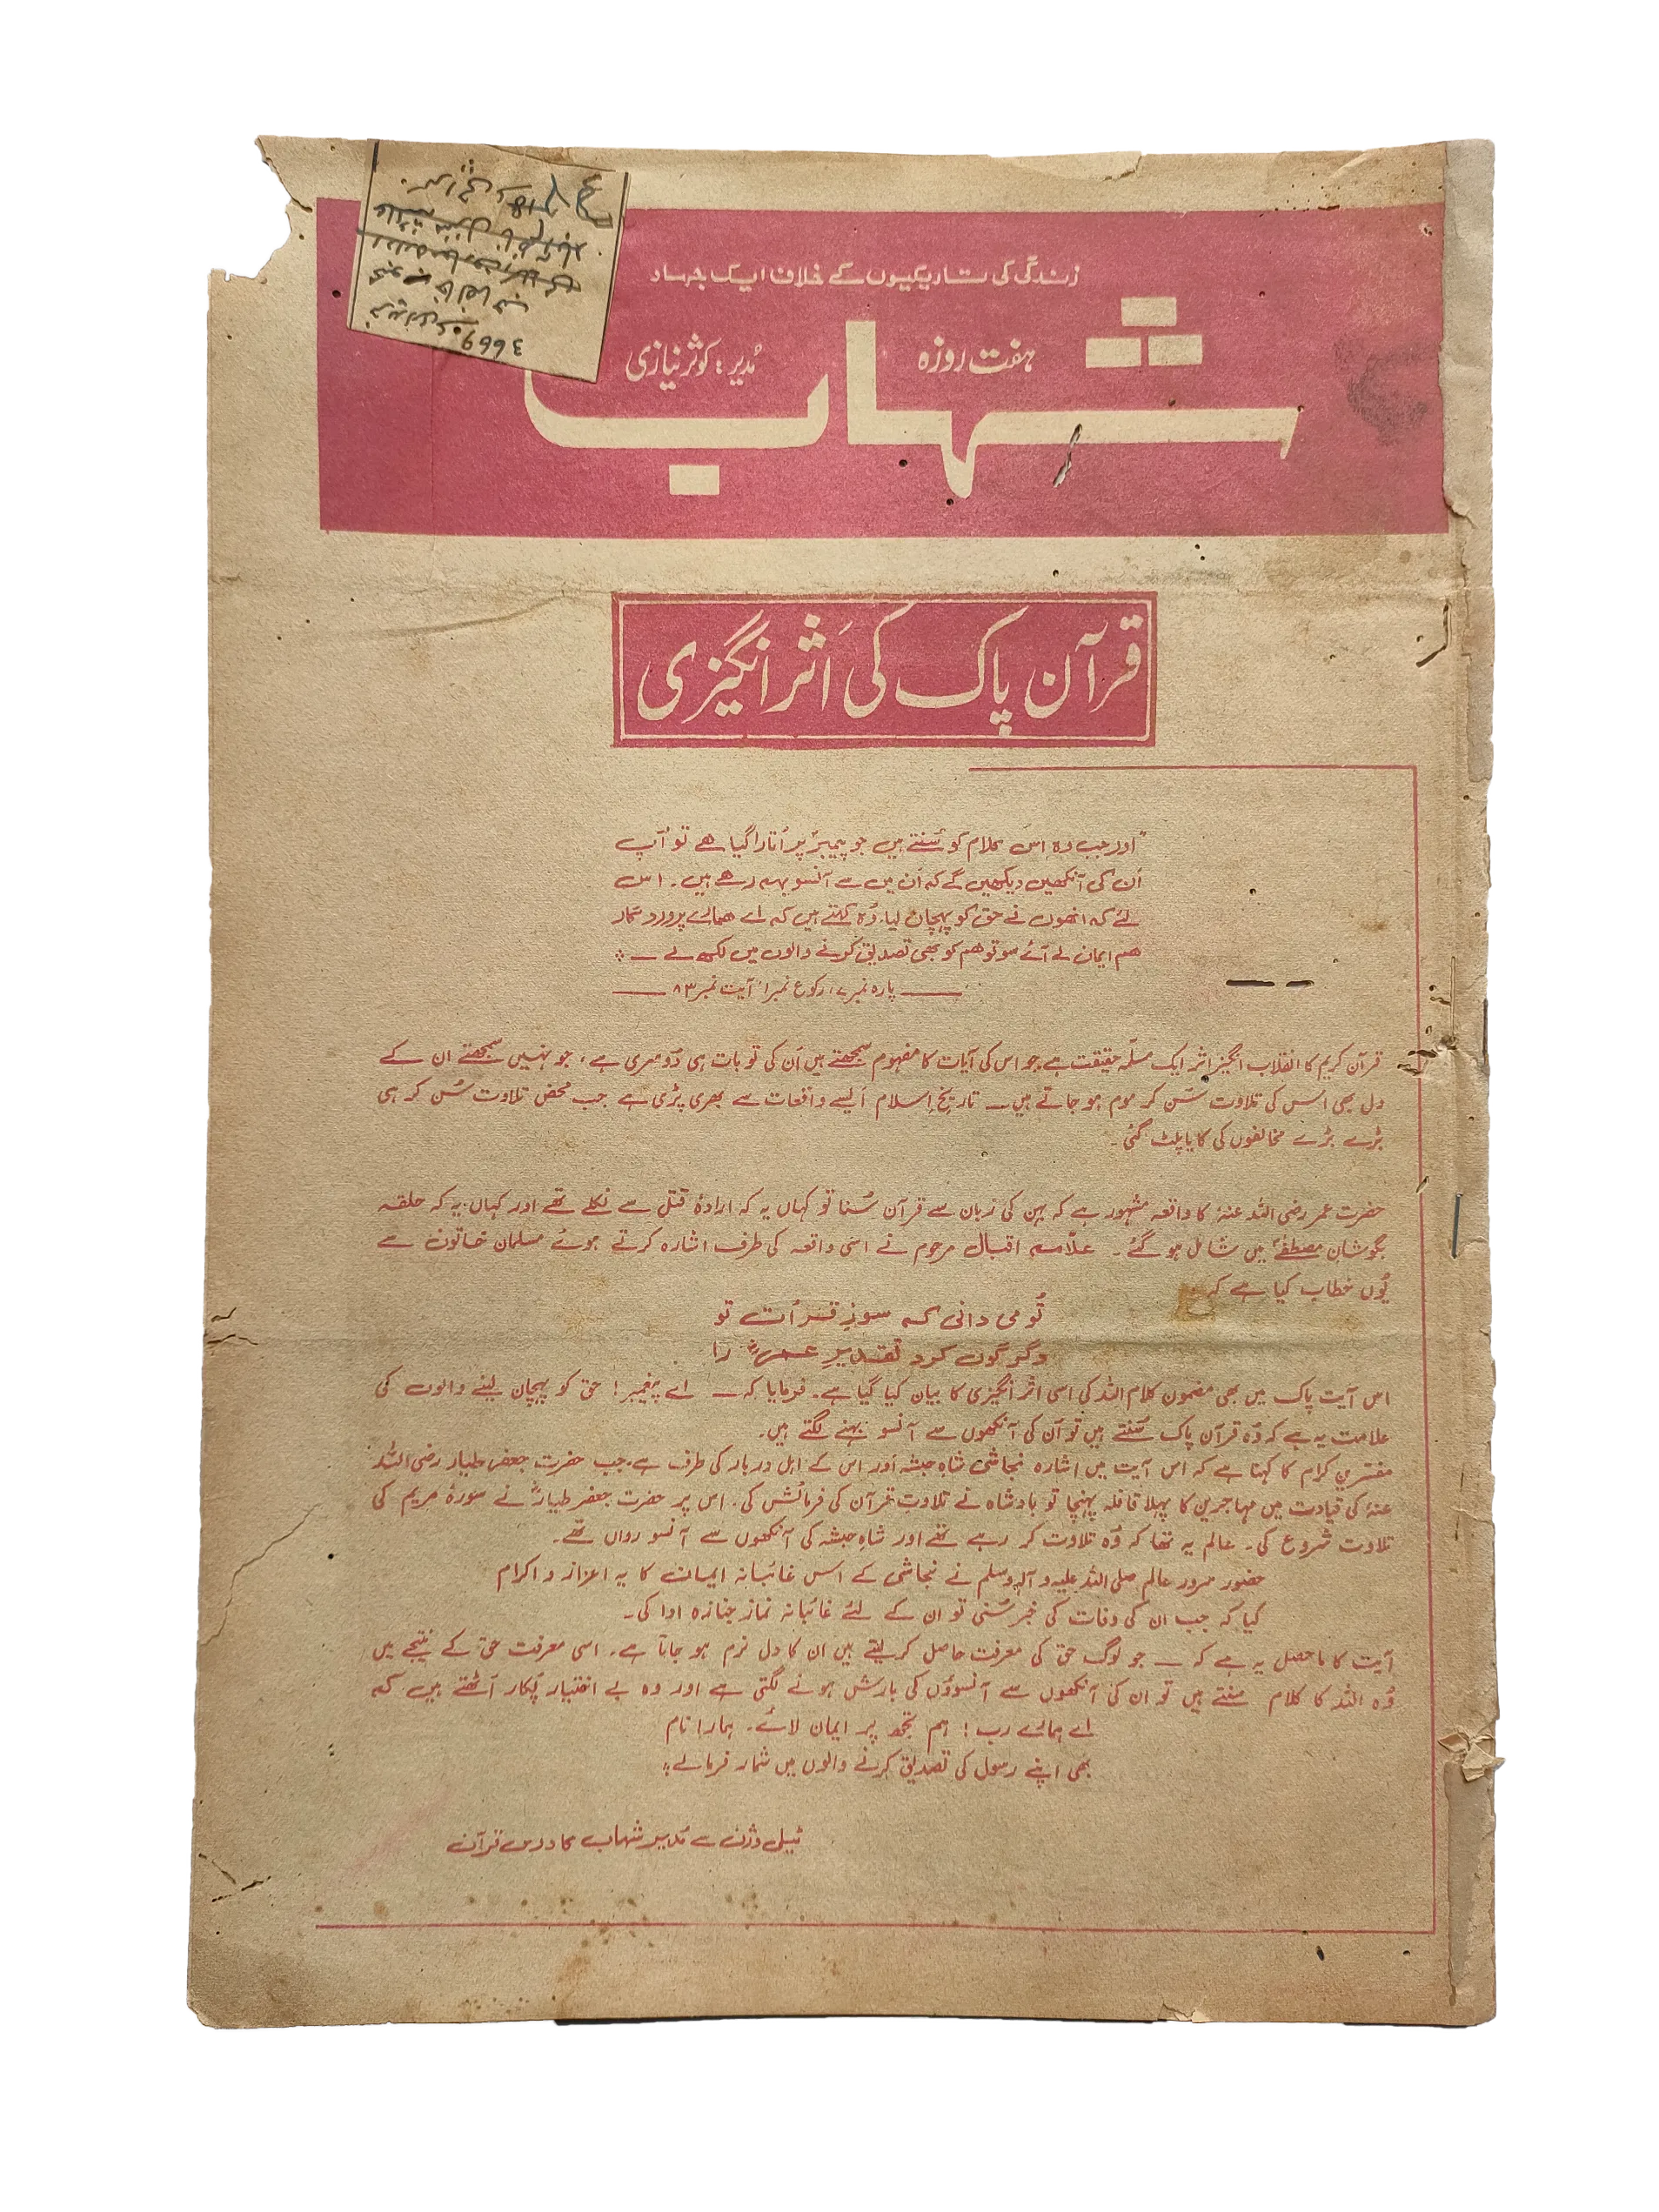 زندگی کی تاریکیوں کے خلاف ایک جہاد
ہفت روزہ
شہاب
مُدیر : کوثر نیازی
3669
قرآن پاک کی اَثر انگیزی
"اور جب وہ اِس کلام کو سُنتے ہیں جو پیمبرؐ پر اُتارا گیا ہے تو آپ
اُن کی آنکھیں دیکھیں گے کہ اُن میں سے آنسو بہہ رہے ہیں۔ اس
لئے کہ انھوں نے حق کو پہچان لیا، وُہ کہتے ہیں کہ اے ہمارے پروردگار
ہم ایمان لے آئے سو تو ہم کو بھی تصدیق کرنے والوں میں لکھ لے ــ
ــــ پارہ نمبر ۷، رکوع نمبر ۱، آیت نمبر ۸۳ ــــ
قرآن کریم کا انقلاب انگیز اثر ایک مسلّمہ حقیقت ہے۔ جو اس کی آیات کا مفہوم سمجھتے ہیں اُن کی تو بات ہی دُوسری ہے، جو نہیں سمجھتے ان کے
دل بھی اس کی تلاوت سُن کر موم ہو جاتے ہیں ــ تاریخِ اسلام ایسے واقعات سے بھری پڑی ہے جب محض تلاوت سُن کر ہی
بڑے بڑے مخالفوں کی کایا پلٹ گئی۔
حضرت عمر رضی اللہ عنہٗ کا واقعہ مشہور ہے کہ بہن کی زبان سے قرآن سُنا تو کہاں یہ کہ ارادۂ قتل سے نکلے تھے اور کہاں یہ کہ حلقہ
بگوشانِ مصطفےٰؐ میں شامل ہو گئے۔ علاّمہ اقبال مرحوم نے اسی واقعہ کی طرف اشارہ کرتے ہوئے مسلمان خاتون سے
یُوں خطاب کیا ہے کہ
تُو می دانی کہ سوزِ قرأت تو
دگرگوں کرد تقدیرِ عمرؓ را
اس آیت پاک میں بھی مضمون کلام اللہ کی اسی اثر انگیزی کا بیان کیا گیا ہے۔ فرمایا کہ ــ اے پیغمبر! حق کو پہچان لینے والوں کی
علامت یہ ہے کہ وُہ قرآن پاک سُنتے ہیں تو اُن کی آنکھوں سے آنسو بہنے لگتے ہیں۔
مفسّرینِ کرام کا کہنا ہے کہ اس آیت میں اشارہ نجاشی شاہِ حبشہ اور اس کے اہل دربار کی طرف ہے۔ جب حضرت جعفر طیار رضی اللہ
عنہٗ کی قیادت میں مہاجرین کا پہلا قافلہ پہنچا تو بادشاہ نے تلاوتِ قرآن کی فرمائش کی۔ اس پر حضرت جعفر طیارؓ نے سورۂ مریم کی
تلاوت شروع کی۔ عالم یہ تھا کہ وُہ تلاوت کر رہے تھے اور شاہِ حبشہ کی آنکھوں سے آنسو رواں تھے۔
حضور سرورِ عالم صلی اللہ علیہ و آلہٖ وسلم نے نجاشی کے اس غائبانہ ایمان کا یہ اعزاز و اکرام
کیا کہ جب ان کی وفات کی خبر سُنی تو ان کے لئے غائبانہ نمازِ جنازہ ادا کی۔
آیت کا ماحصل یہ ہے کہ ــ جو لوگ حق کی معرفت حاصل کر لیتے ہیں ان کا دل نرم ہو جاتا ہے۔ اسی معرفت حق کے نتیجے میں
وُہ اللہ کا کلام سنتے ہیں تو ان کی آنکھوں سے آنسوؤں کی بارش ہونے لگتی ہے اور وہ بے اختیار پُکار اُٹھتے ہیں کہ
اے ہمارے رب! ہم تجھ پر ایمان لائے۔ ہمارا نام
بھی اپنے رسول کی تصدیق کرنے والوں میں شمار فرمالے۔
ٹیلی وژن سے مُدیر شہاب کا درس قرآن